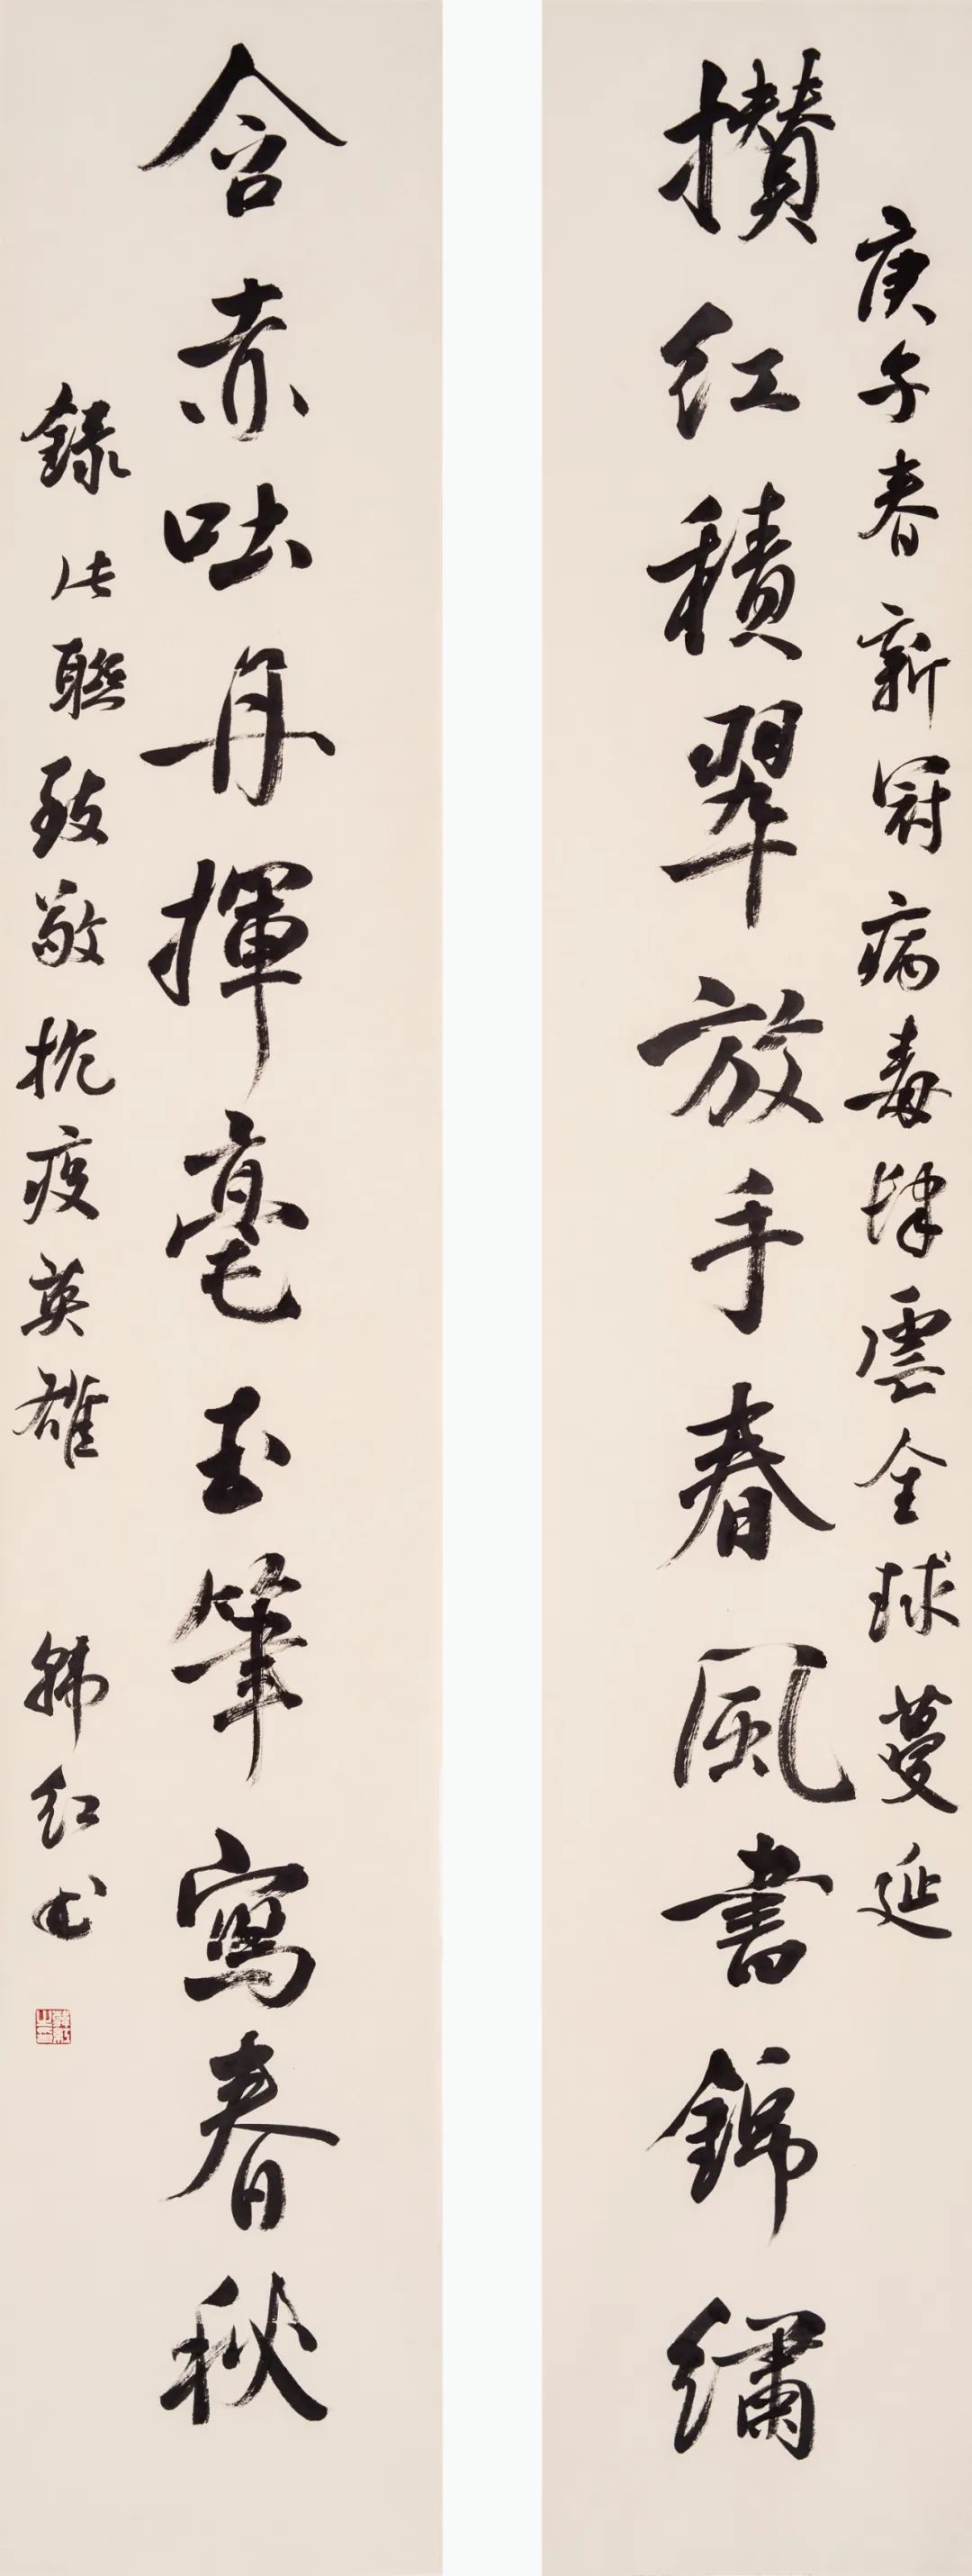 庚子春新冠病毒肆虐全球蔓延
攢紅積翠放手春風書錦繡
含赤吐丹揮毫玉筆寫春秋
錄佳聯致敬抗疫英雄 韓紅书